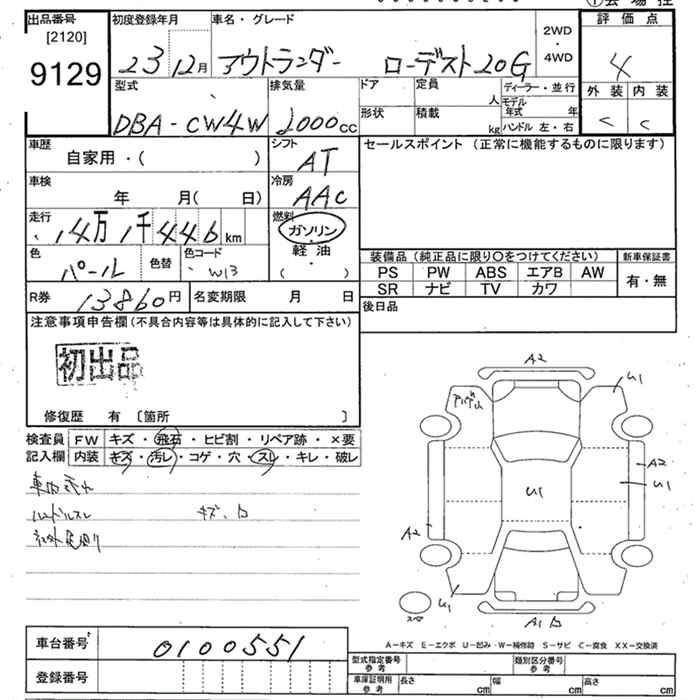 出品番号 初度登録年月 車名・グレード 2WD・4WD 評価点
[2120]
9129 23 12月 アウトランダー ローデスト20G 4
型式 排気量 ドア 定員 人 ディーラー・並行 外装 内装
DBA-CW4W 2000cc 形状 積載 kg モデル年式 年 ハンドル 左・右 C C
車歴 自家用・( ) シフト AT セールスポイント (正常に機能するものに限ります)
車検 年 月( 日) 冷房 AAC
走行 14万1千446km 燃料 ガソリン・軽油・( )
色 パール 色替 色コード W13
装備品 (純正品に限り○をつけてください) 新車保証書
PS PW ABS エアB AW 有・無
SR ナビ TV カワ
R券 13860円 名変期限 月 日 後日品
注意事項申告欄(不具合内容等は具体的に記入して下さい)
初出品
修復歴 有 〔箇所 〕
検査員 FW キズ・飛石・ヒビ割・リペア跡・×要
記入欄 内装 キズ・汚レ・コゲ・穴・スレ・キレ・破レ
ハンドルスレ キズ、
A2
U1
A2
U1
U1
A2
U1
A1
スペア
A-キズ E-エクボ U-凹み・W-補修跡 S-サビ C-腐食 XX-交換済
車台番号 0100551
型式指定番号 参考 類別区分番号 参考
登録番号 車庫証明用 参考 長さ cm 幅 cm 高さ cm